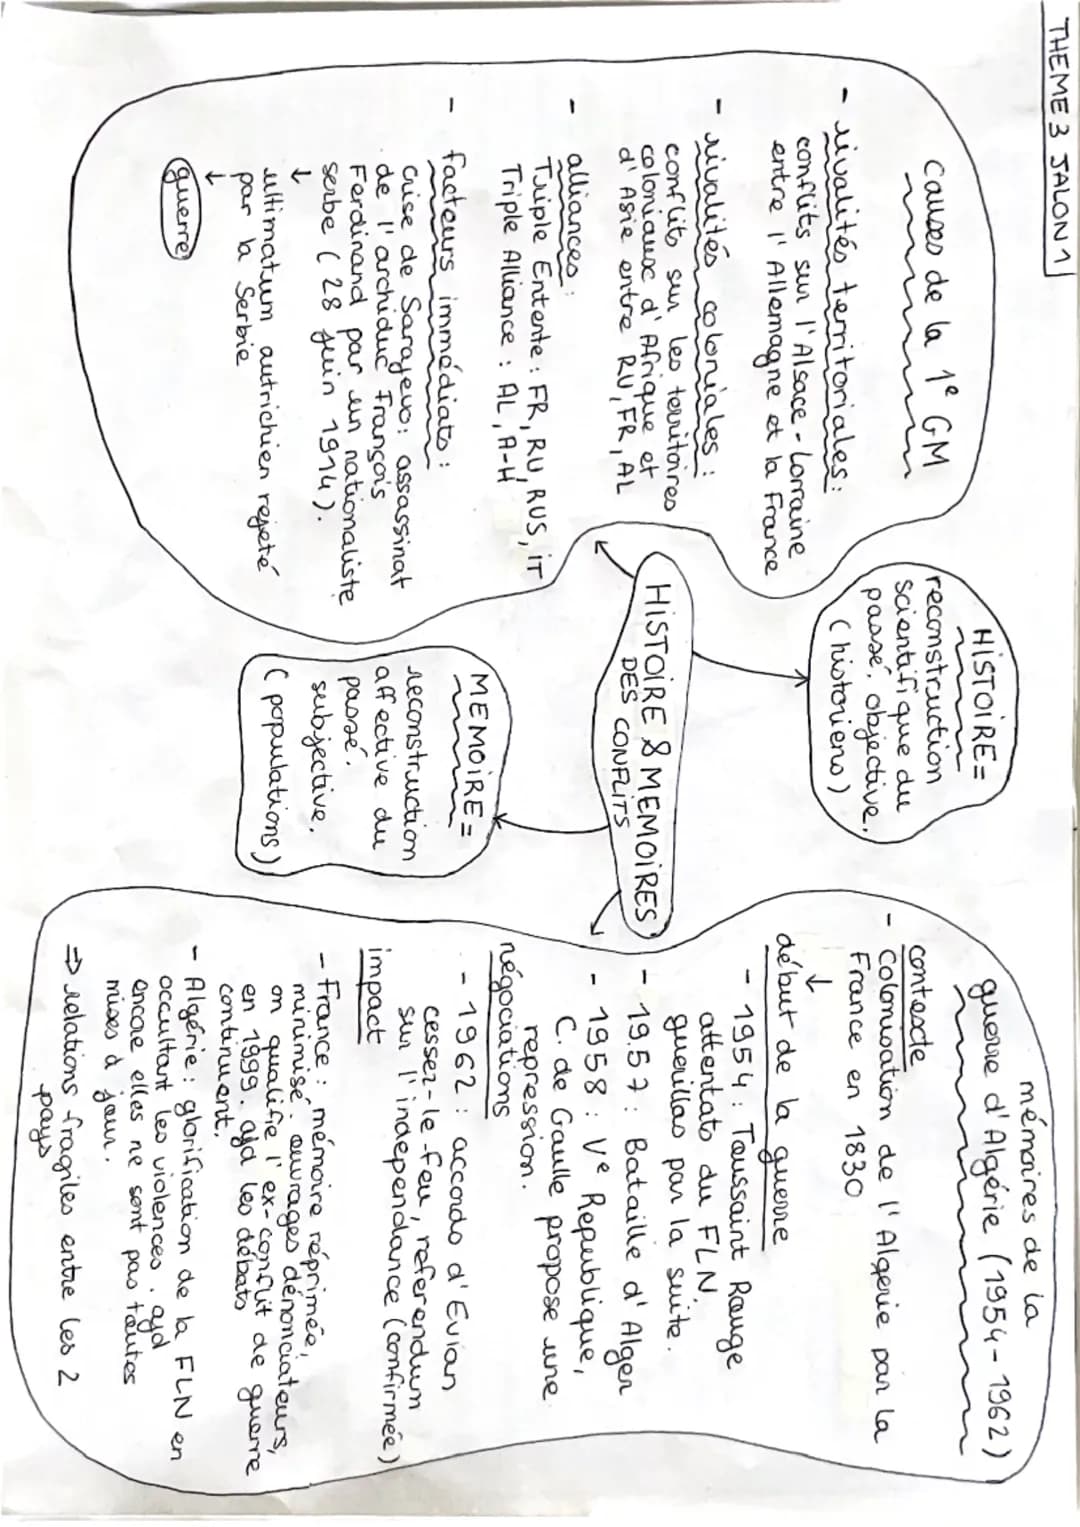 THEME 3 JALON 1
causes de la 1e GM
- rivalités territoriales :
conflits sur l'Alsace-Lorraine
entre l'Allemagne et la France
- rivalités coloniales :
conflits sur les territoires
coloniaux d'Afrique et
d'Asie entre RU, FR, AL
- alliances :
Triple Entente : FR, RU, RUS, iT
Triple Alliance : AL, A-H
- facteurs immédiats :
crise de Sarajevo : assassinat
de l'archiduc François
Ferdinand par un nationaliste
serbe (28 juin 1914).
↓
ultimatum autrichien rejeté
par la Serbie
↓
guerre
HiSTOiRE =
reconstruction
scientifique du
passé, objective.
(historiens)
HiSTOiRE & MEMOiRES
DES CONFLiTS
MEMOiRE =
reconstruction
affective du
passé.
subjective.
(populations)
mémoires de la
guerre d'Algérie (1954-1962)
contexte
- Colonisation de l'Algerie par la
France en 1830
↓
début de la guerre
- 1954 : Toussaint Rouge
attentats du FLN
guerillas par la suite.
- 1957 : Bataille d'Alger
- 1958 : Ve Republique,
C. de Gaulle propose une
repression.
négociations
- 1962 : accords d'Evian
cessez-le-feu, referendum
sur l'independance (confirmée)
impact
- France : mémoire réprimée,
minimisé. ouvrages dénonciateurs,
on qualifie l'ex-conflit de guerre
en 1999. ajd les débats
continuent.
- Algérie : glorification de la FLN en
occultant les violences. ajd
encore elles ne sont pas toutes
mises à jour.
⇒ relations fragiles entre les 2
pays